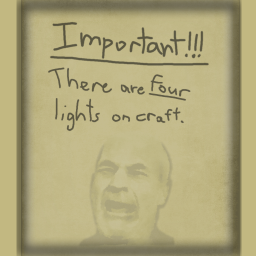 Important!!!
There are four
lights on craft.